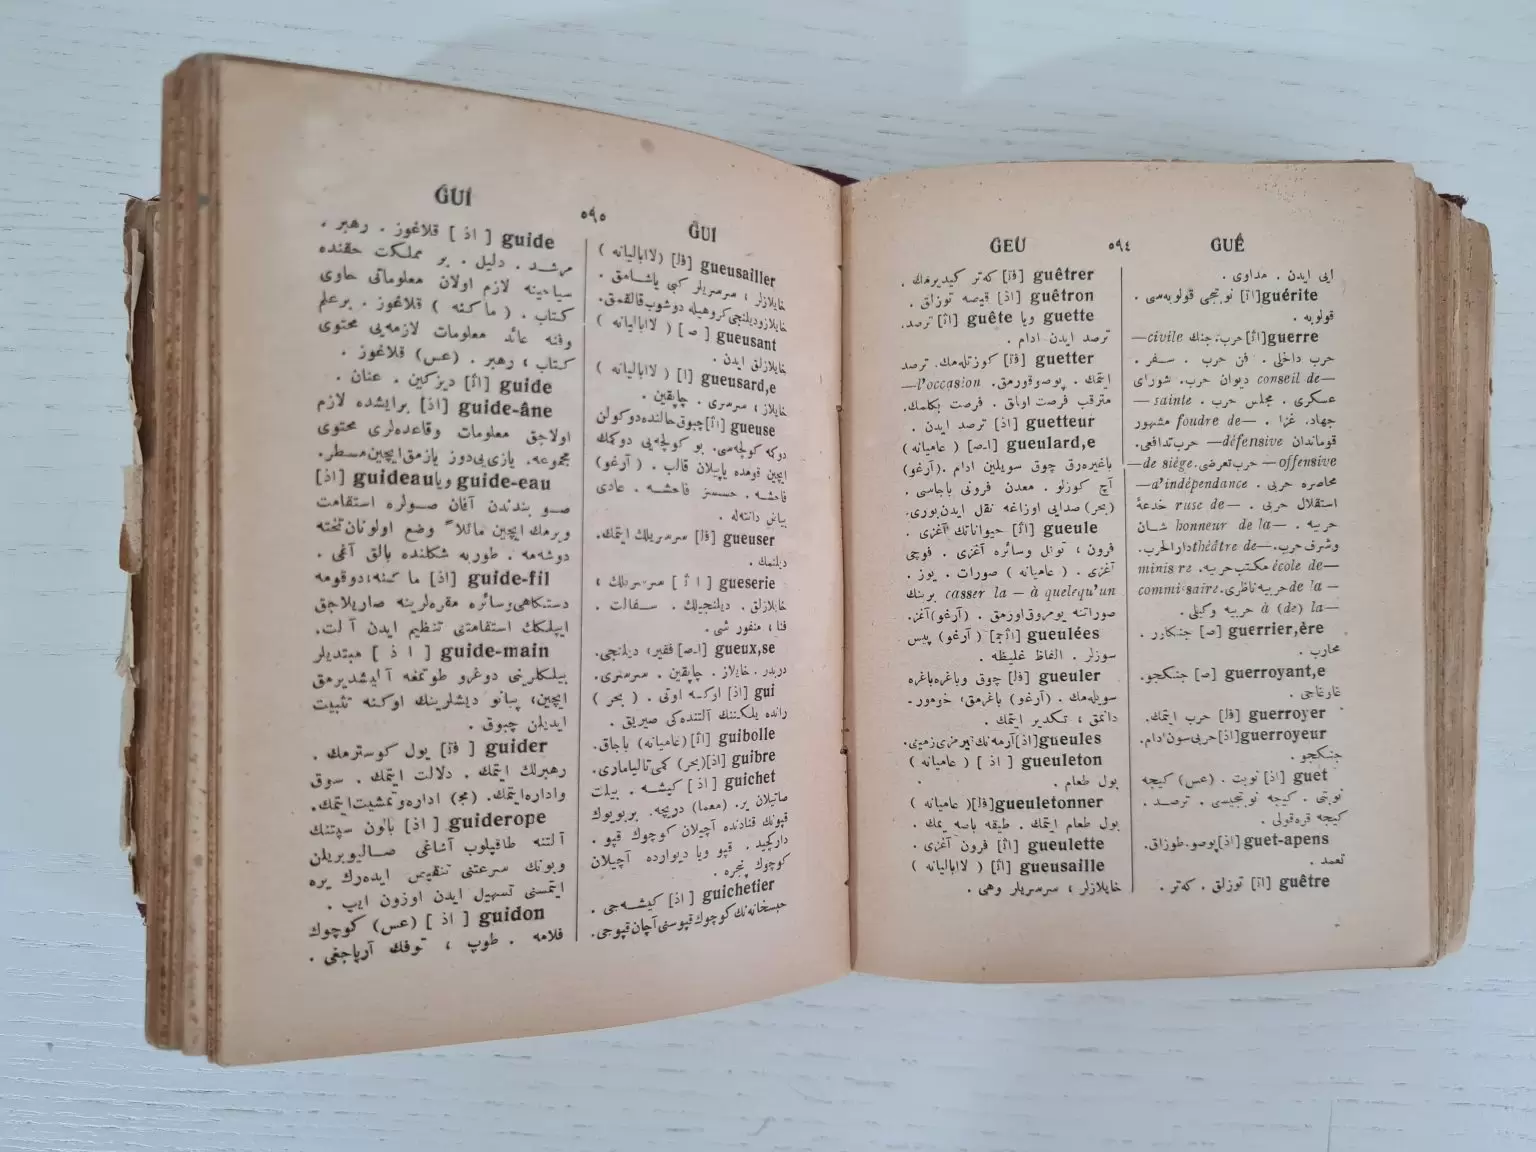 GUÊ
٥٩٤
GEU
ايى ايدن . مداوى .
guérite [اث] نوبتجى قولوبه‌سى .
قولوبه .
guerre [اث] حرب، جنك civile—
حرب داخلى . فن حرب . سفر .
conseil de— ديوان حرب. شوراى
عسكرى . مجلس حرب . sainte —
جهاد. غزا . foudre de— مشهور
قوماندان défensive— حرب تدافعى.
offensive — حرب تعرضى. de siége—
محاصره حربى . d'indépendance—
استقلال حربى . ruse de— خدعۀ
حربيه . honneur de la— شان
وشرف حرب. théâtre de— دارالحرب.
école de— مكتب حربيه. minis re
de la — حربيه ناظرى. commissaire
à (de) la— حربيه وكيلى .
guerrier,ère [ص] جنكاور .
محارب .
guerroyant,e [ص] جنكجو.
غاوغاجى .
guerroyer [فل] حرب ايتمك.
guerroyeur [اذ] حربى سون ادام.
جنكجو .
guet [اذ] نوبت . (عس) كيجه
نوبتى . كيجه نوبتجيسى . ترصد .
كيجه قره‌قولى .
guet-apens [اذ] پوصو. طوزاق.
تعمد .
guêtre [اث] توزلق . كه‌تر .
guêtrer [فٓ] كه‌تر كيديرمك .
guêtron [اذ] قيصه توزلق .
guette ويا guête [اث] ترصد.
ترصد ايدن ادام .
guetter [فٓ] كوزتله‌مك. ترصد
ايتمك . پوصوقورمق. l'occasion—
مترقب فرصت اولق . فرصت بكلمك.
guetteur [اذ] ترصد ايدن .
gueulard,e [ا.ص] ( عاميانه )
باغيره‌رق چوق سويلين ادام .(آرغو)
آچ كوزلو . معدن فرونى باجاسى .
(بحر) صدايى اوزاغه نقل ايدن بورى.
gueule [اث] حيواناتك آغزى .
فرون ، تونل وسائره آغزى . قوجى
آغزى . ( عاميانه ) صورات . يوز .
casser la — à quelequ'un برينك
صوراتنه يومروق اورمق . (آرغو) آغز.
gueulées [اثج] ( آرغو) پيس
سوزلر . الفاظ غليظه .
gueuler [فل] چوق وباغره‌باغره
سويله‌مك . (آرغو) باغرمق، خومور-
دانمق ، تكدير ايتمك .
gueules [اذ] آرمه‌نك قيرمزى زمينى.
gueuleton [ اذ ] ( عاميانه )
بول طعام .
gueuletonner [فل] ( عاميانه )
بول طعام ايتمك . طيقه باصه يمك .
gueulette [اث] فرون آغزى .
gueusaille [اث] ( لاابالیانه )
خايلازلر ، سرسريلر وهى .
GUI
٥٩٥
GUI
gueusailler [فل] (لاابالیانه )
خايلازلر ، سرسريلر كبى ياشامق .
خايلاز وديلنجى كروهيله دوشوب قالقمق.
gueusant [ ص ] ( لاابالیانه )
خايلازلق ايدن .
gueusard,e [ا] ( لاابالیانه )
خايلاز ، سرسرى . چاپقين .
gueuse [اث] چبوق حالنده دوكولن
دوكه كولچه‌سى. بو كولچه‌يى دوكمك
ايچين قومده ياپيلان قالب . ( آرغو)
فاحشه . حسسز فاحشه . عادى
بياض دانته‌له .
gueuser [فل] سرسريلك ايتمك.
ديلنمك .
gueserie [ اث ] سرسريلك ،
خايلازلق . ديلنجيلك . سفالت .
فنا ، منفور شى .
gueux,se [ا.ص] فقير، ديلنجى.
دربدر . خايلاز . چاپقين . سرسرى.
gui [اذ] اركسه اوتى . ( بحر )
رانده يلكننك آلتنده‌كى صيريق .
guibolle [اث] (عاميانه) باجاق.
guibre [اذ] (بحر) كمى تاليامارى.
guichet [ اذ ] كيشه . بيلت
صاتيلان ير. (معما) دريچه. بربويوك
قپونك قنادنده آچيلان كوچوك قپو .
داركچيد . قپو ويا ديوارده آچيلان
كوچوك پنجره .
guichetier [ اذ] كيشه‌جى .
حبسخانه‌نك كوچوك قپوسنى آچان قپوجى.
guide [ اذ ] قلاغوز . رهبر .
مرشد . دليل . بر مملكت حقنده
سياحينه لازم اولان معلوماتى حاوى
كتاب . ( ماكنه ) قلاغوز . برعلم
وفنه عائد معلومات لازمه‌يى محتوى
كتاب ، رهبر . (عس) قلاغوز .
guide [اث] ديزكين . عنان .
guide-âne [اذ] برايشده لازم
اولاجق معلومات وقاعده‌لرى محتوى
مجموعه. يازى‌يى دوز يازمق ايچين مسطر.
guide-eau ويا guideau [اذ]
صو بندندن آقان صولره استقامت
ويرمك ايچين مائلاً وضع اولونان تخته
دوشه‌مه . طوربه شكلنده بالق آغى .
guide-fil [اذ] ماكنه: دوقومه
دستكاهى وسائره مقره‌لرينه صاريلاجق
ايپلكك استقامتنى تنظيم ايدن آلت.
guide-main [ اذ ] مبتديلر
بيلكلرينى دوغرو طوتمغه آليشديرمق
ايچين، پيانو ديشلرينك اوكنه تثبيت
ايديلن چبوق .
guider [ فٓ] يول كوسترمك .
رهبرلك ايتمك . دلالت ايتمك . سوق
واداره ايتمك. (مج) اداره وتمشيت ايتمك.
guiderope [ اذ] بالون سپتنك
آلتنه طاقيلوب آشاغى صاليويريلن
وبونك سرعتنى تنقيص ايده‌رك يره
ايتمسنى تسهيل ايدن اوزون ايپ .
guidon [ اذ ] (عس) كوچوك
فلامه . طوپ ، توفك آرپاجغى .